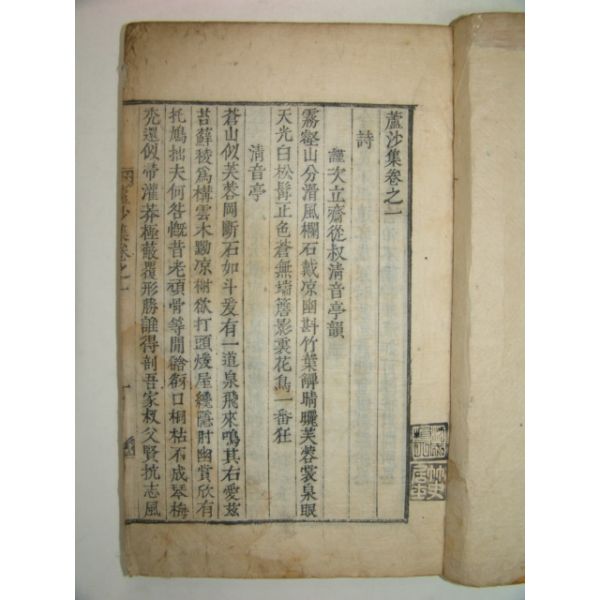 蘆沙集卷之一
詩
謹次立齋從叔清音亭韻
霧壑山分滑風欄石戴凉幽斟竹葉觶晴曬芙蓉裳泉眠
天光白松髯正色蒼無端簷影裏花鳥一番狂
清音亭
蒼山似芙蓉岡斷石如斗爰有一道泉飛來鳴其右愛玆
苔蘚稜爲構雲木黝凉榭欲打頭煖屋纔隱肘幽賞欣有
托鳩拙夫何咎慨昔老頑骨等閒谽谺口桐枯不成琴梅
禿還似帚灌莽極蔽覆形勝誰得剖吾家叔父賢抗志風
蘆沙集卷之一
一